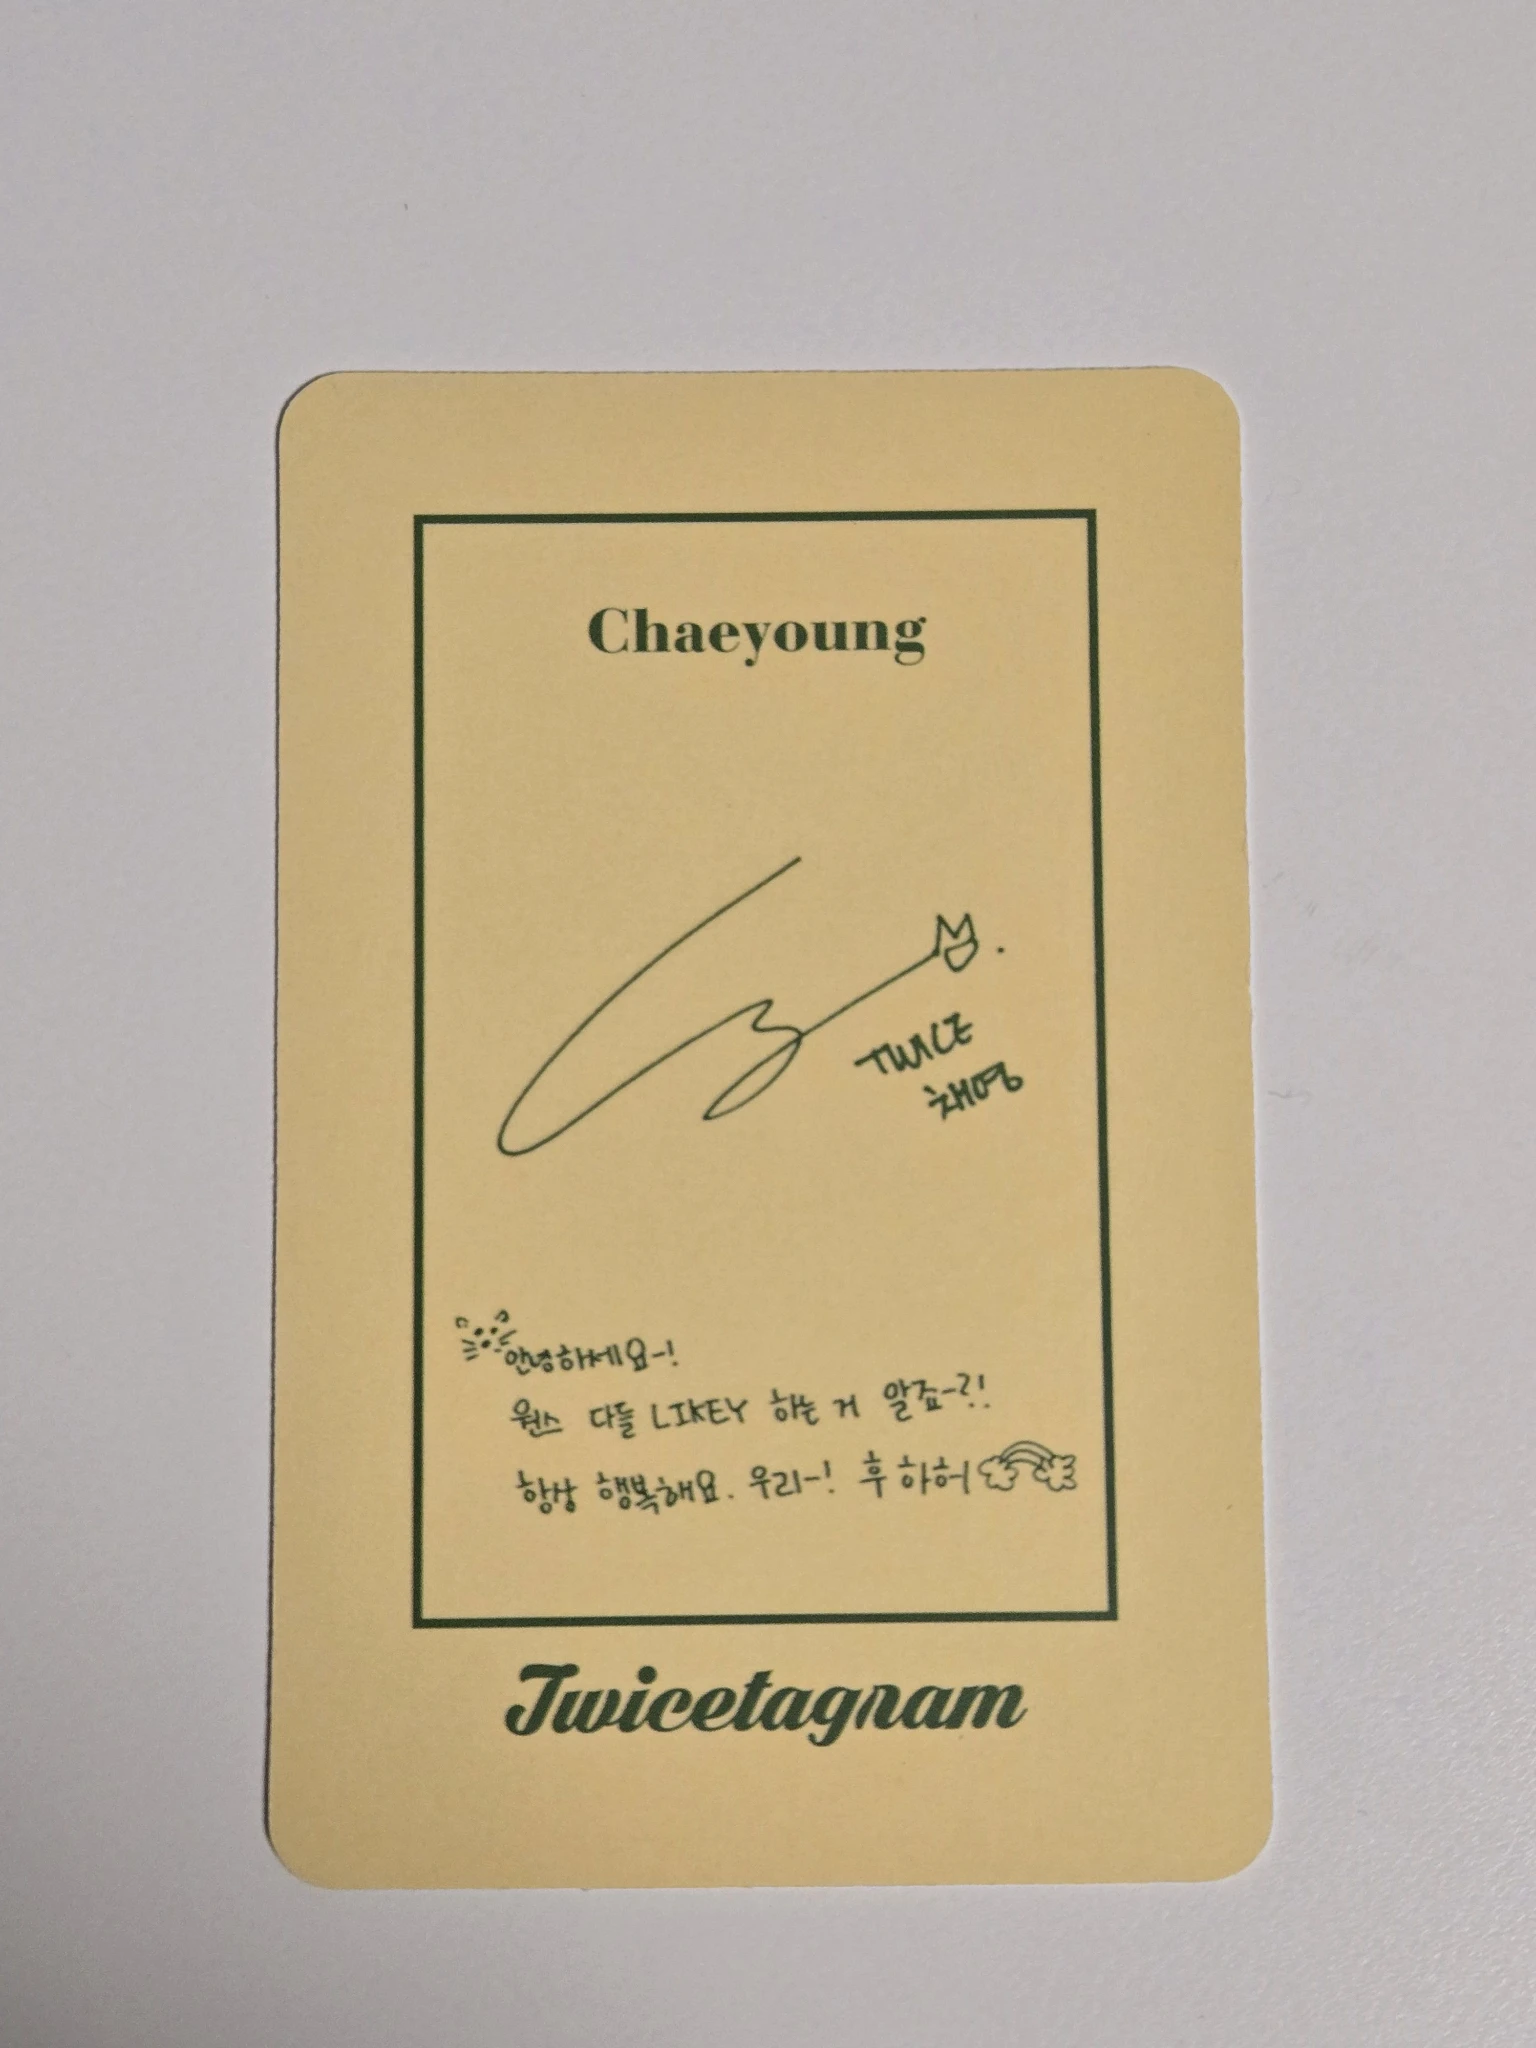 Chaeyoung
TWICE
채영
안녕하세요-!
원스 다들 LIKEY 하는 거 알죠-?!
항상 행복해요. 우리-! 후 하허
Twicetagram